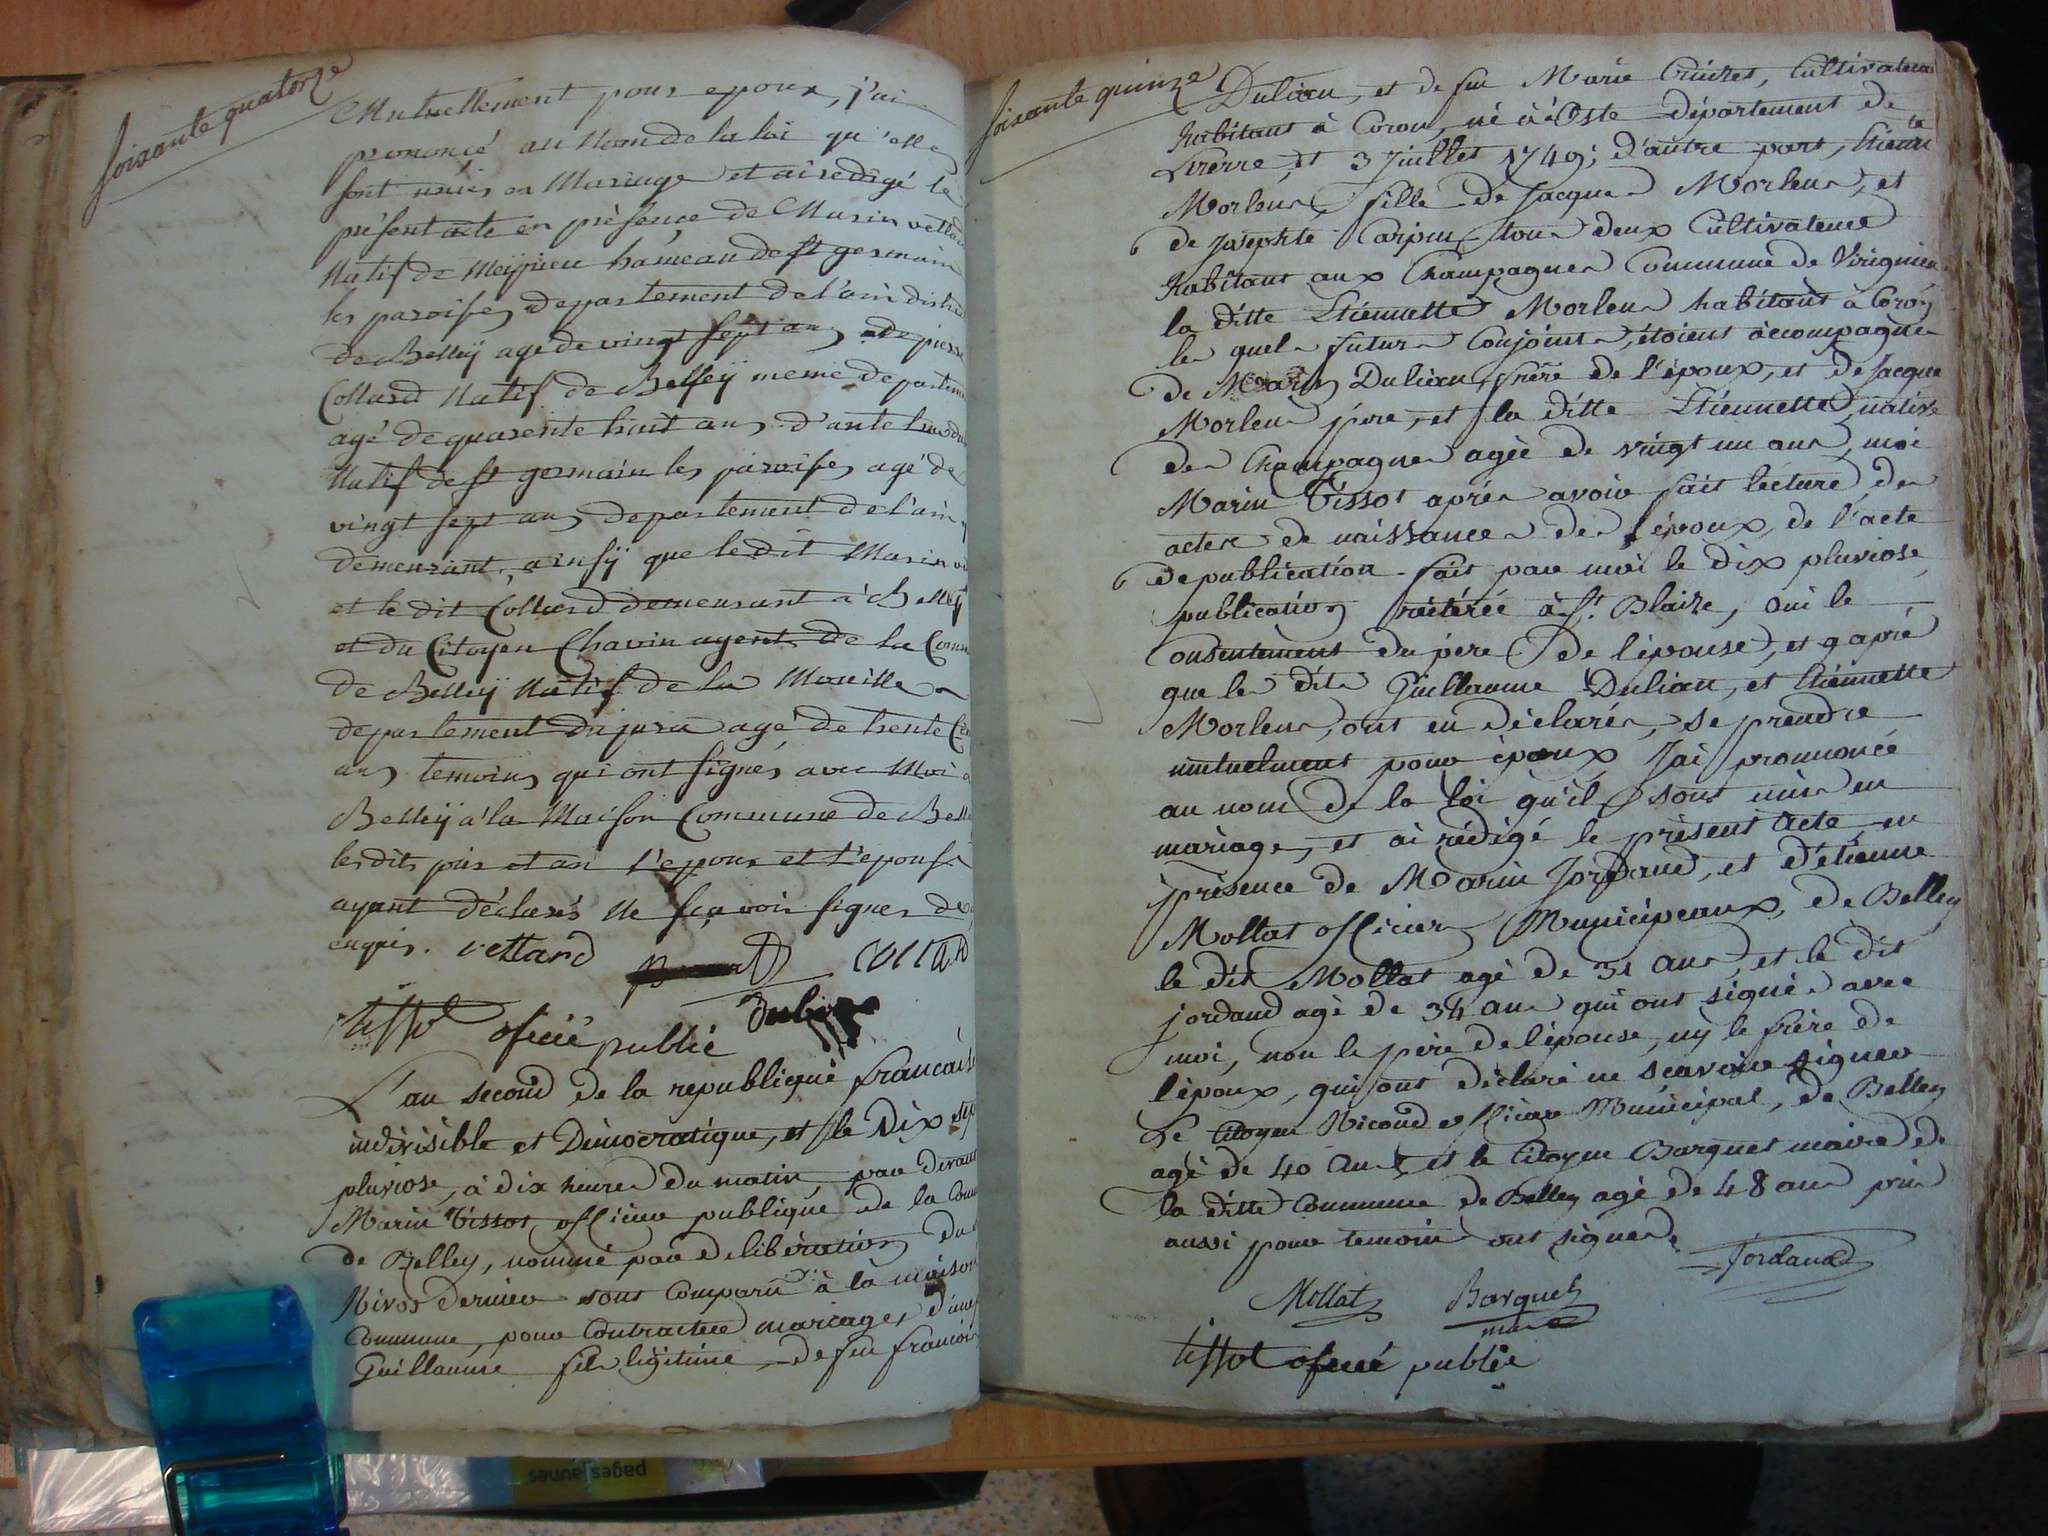 soixante quatorze
Mutuellement pour epoux, j'ai
prononcé au Nom de la loi qu'elles
sont unies en Mariage et ai redigé le
présent acte en présence de Marin vettard
Natif de Meÿrieu hameau de st germain
les paroises departement de l'ain district
de Belleÿ agé de vingt sept ans de pierre
Collard Natif de Belleÿ meme departement
agé de quarente huit ans d'antelme
Natif de st germain les paroises agé de
vingt sept ans departement de l'ain
demeurant, ainsÿ que le dit Marin
et le dit Collard demeurant à Belleÿ
et du Citoyen Chavin agent de la Comm
de Belleÿ Natif de la
departement du jura agé de trente
ans temoins qui ont signés avec Moi a
Belleÿ a la Maison Commune de Bell
lesdits l'epoux et l'epouse
ayant déclarés Ne sçavoir signer de
enquis. vettard collard
Dubi
tissot oficié publié
L'an second de la republique française
indivisible et Démocratique, et le Dix sept
pluviose, à dix heures du matin, par devant
Marin Tissot, officier publique de la Com
de Belley, nommé par deliberation du
Nivos dernier sont Comparu à la maison
Commune, pour Contracter mariage, d'une
Guillaume fils légitime de feu françois
soixante quinze
Dulian, et de feu Marie Cuichet, Cultivateur
habitant à Coron, né à Oste département de
Lizerre, et 3 Juillet 1749; d'autre part, Etiennette
Morleur, fille de Jacque Morleur, et
de Josephte Carpin tous deux Cultivateurs
habitant aux Champagnes Commune de Virignien
la ditte Etiennette Morleur habitant à Coron
les quels futurs Conjoints, étoient accompagnés
de Marin Dulian, frère de l'époux, et de Jacque
Morleur père, et la ditte Etiennette, native
des Champagnes agée de vingt un ans, moi
Marin Tissot après avoir fait lecture des
actes de naissances des époux, de l'acte
de publication fait par moi le dix pluviose,
publication réitérée à St. Blaize, oui le
Consentement du père (de l'épouse), et aprè
que les dits Guillaume Dulian, et Etiennette
Morleur, ont eu déclarés, se prendre
mutuelment pour époux J'ai prononcé
au nom de la loi qu'ils sont unis en
mariage, et ai rédigé le présent Acte, en
présence de Marin Jordand, et d'étienne
Mollat officiers Municipeaux, de Belley
le dit Mollat agé de 31 ans, et le dit
jordand agé de 34 ans qui ont signés avec
moi, non le père de l'épouse, ny le frère de
l'époux, qui ont déclaré ne scavoir signer
Le Citoyen Nicoud officier Municipal, de Belley
agé de 40 ans, et le Citoyen Barquet maire de
la ditte Commune de Belley agé de 48 ans pris
aussi pour temoins ont signer.
Jordand
Mollat Barquet
maire
tissot oficié publié
pages jaunes